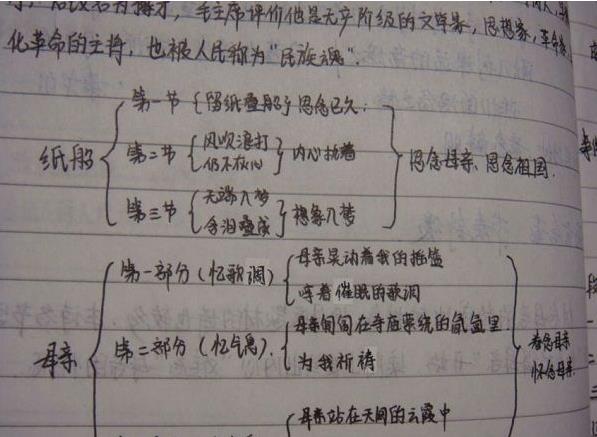 后改名为
毛主席评价他是无产阶级的文学家,思想家,革命家
化革命的主将,也被人民称为"民族魂".
纸船
第一节{留纸叠船}思念已久:
第二节
风吹浪打
仍不灰心
内心执着
第三节
无端入梦
含泪叠成
想象入梦
思念母亲、思念祖国.
母亲
第一部分(忆歌调)
母亲晃动着我的摇篮
哼着催眠的歌调
第二部分(忆气息).
母亲
在寺庙
的氤氲里
为我祈祷
母亲站在天阙的云霞中
母亲
怀念母亲